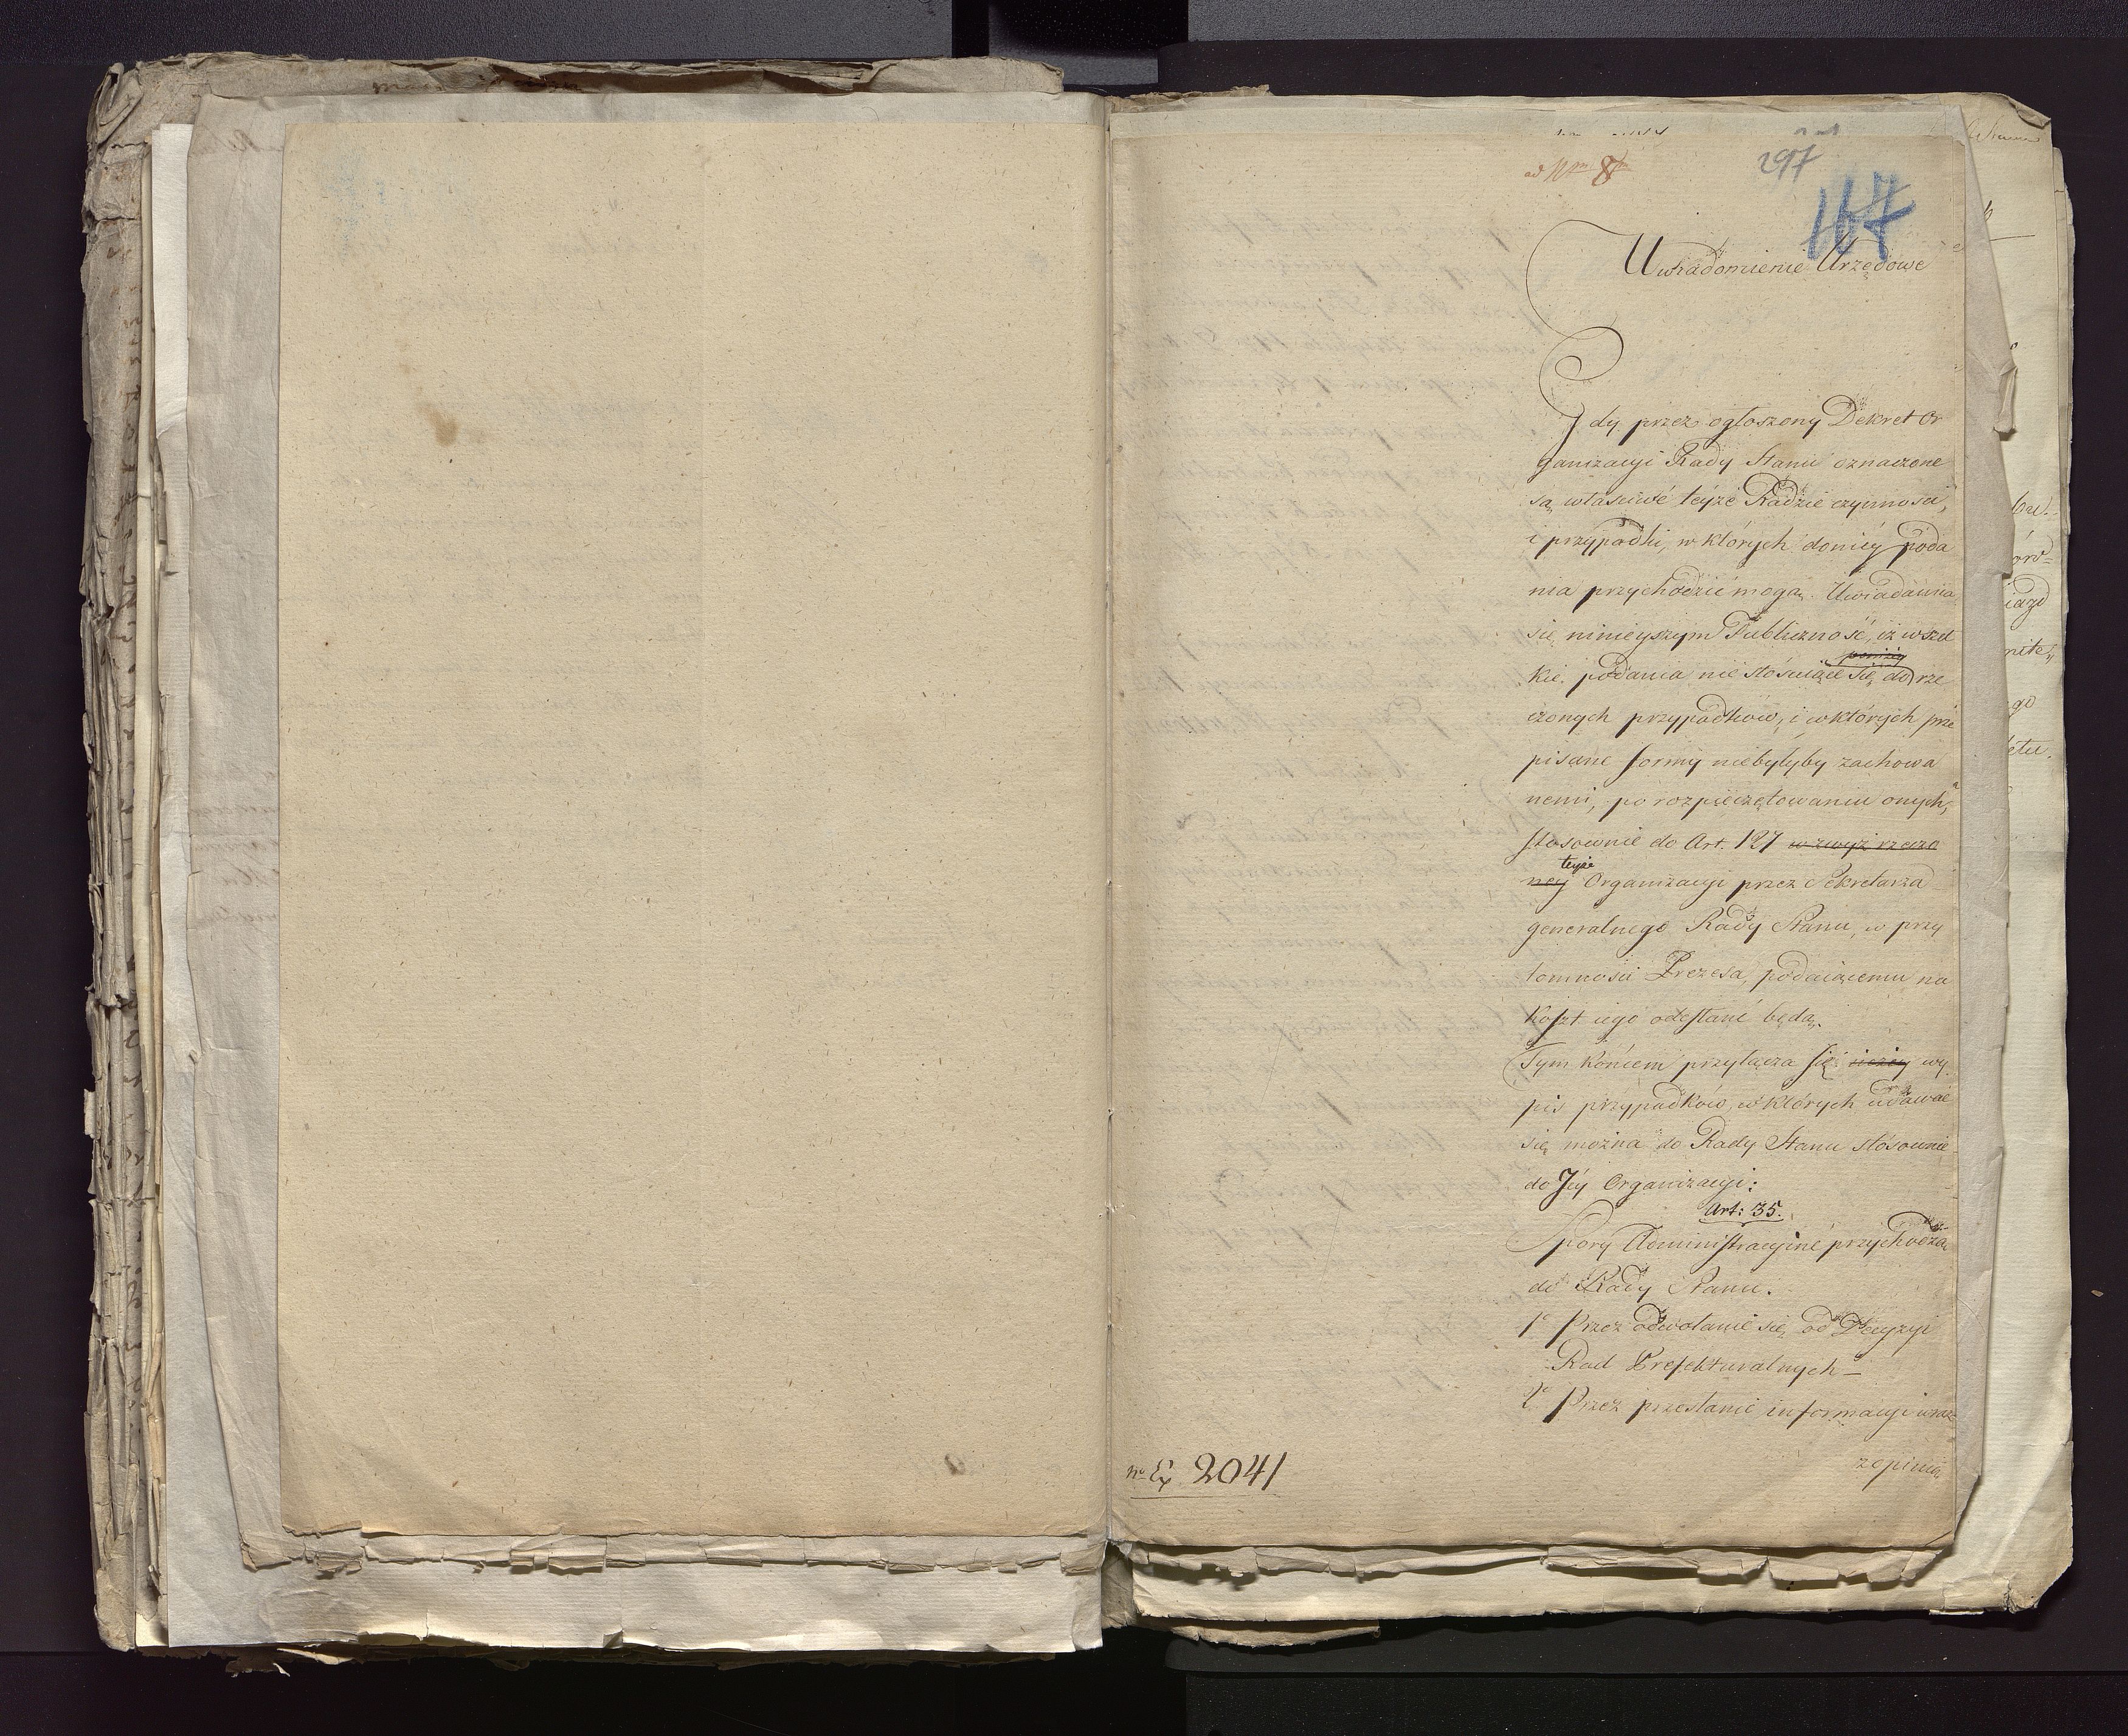 ad Nrm 8m
297
167
Uwiadomienie Urzędowe
Gdy przez ogłoszony Dekret Or
ganizacyi Rady Stanu oznaczone
są właściwe teyże Radzie czynności,
i przypadki, w których do niéy poda
nia przychodzić mogą. Uwiadamia
się ninieyszym Publiczność, iż wszel
poniżey
kie podania nie stósuiące się do rze
czonych przypadków, i w których prze
pisane formy niebyłyby zachowa
nemi, po rozpieczętowaniu onych,
stosownie do Art. 127 w zwyż rzeczo
teyże
ney Organizacyi przez Sekretarza
generalnego Rady Stanu, w przy
tomności Prezesa, podaiącemu na
koszt iego odesłane będą.
Tym końcem przyłącza się niżey wy
pis przypadków, w których udawać
się można do Rady Stanu stósownie
do Jéy Organizacyi:
Art: 35.
Spory Administracyine przychodzą
do Rady Stanu.
1o Przez odwołanie się od Decyzyi
Rad Prefekturalnych —
2o Przez przesłanie informacyi wraz
z opinią
No Ex 2041